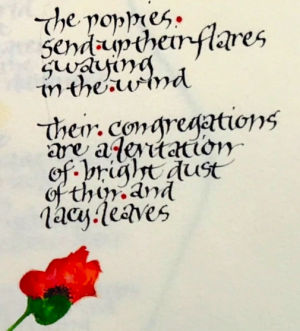 The poppies.
Send up their flares
Swaying
in the wind
Their congregations
are a
of bright dust
of thin and
lacy leaves